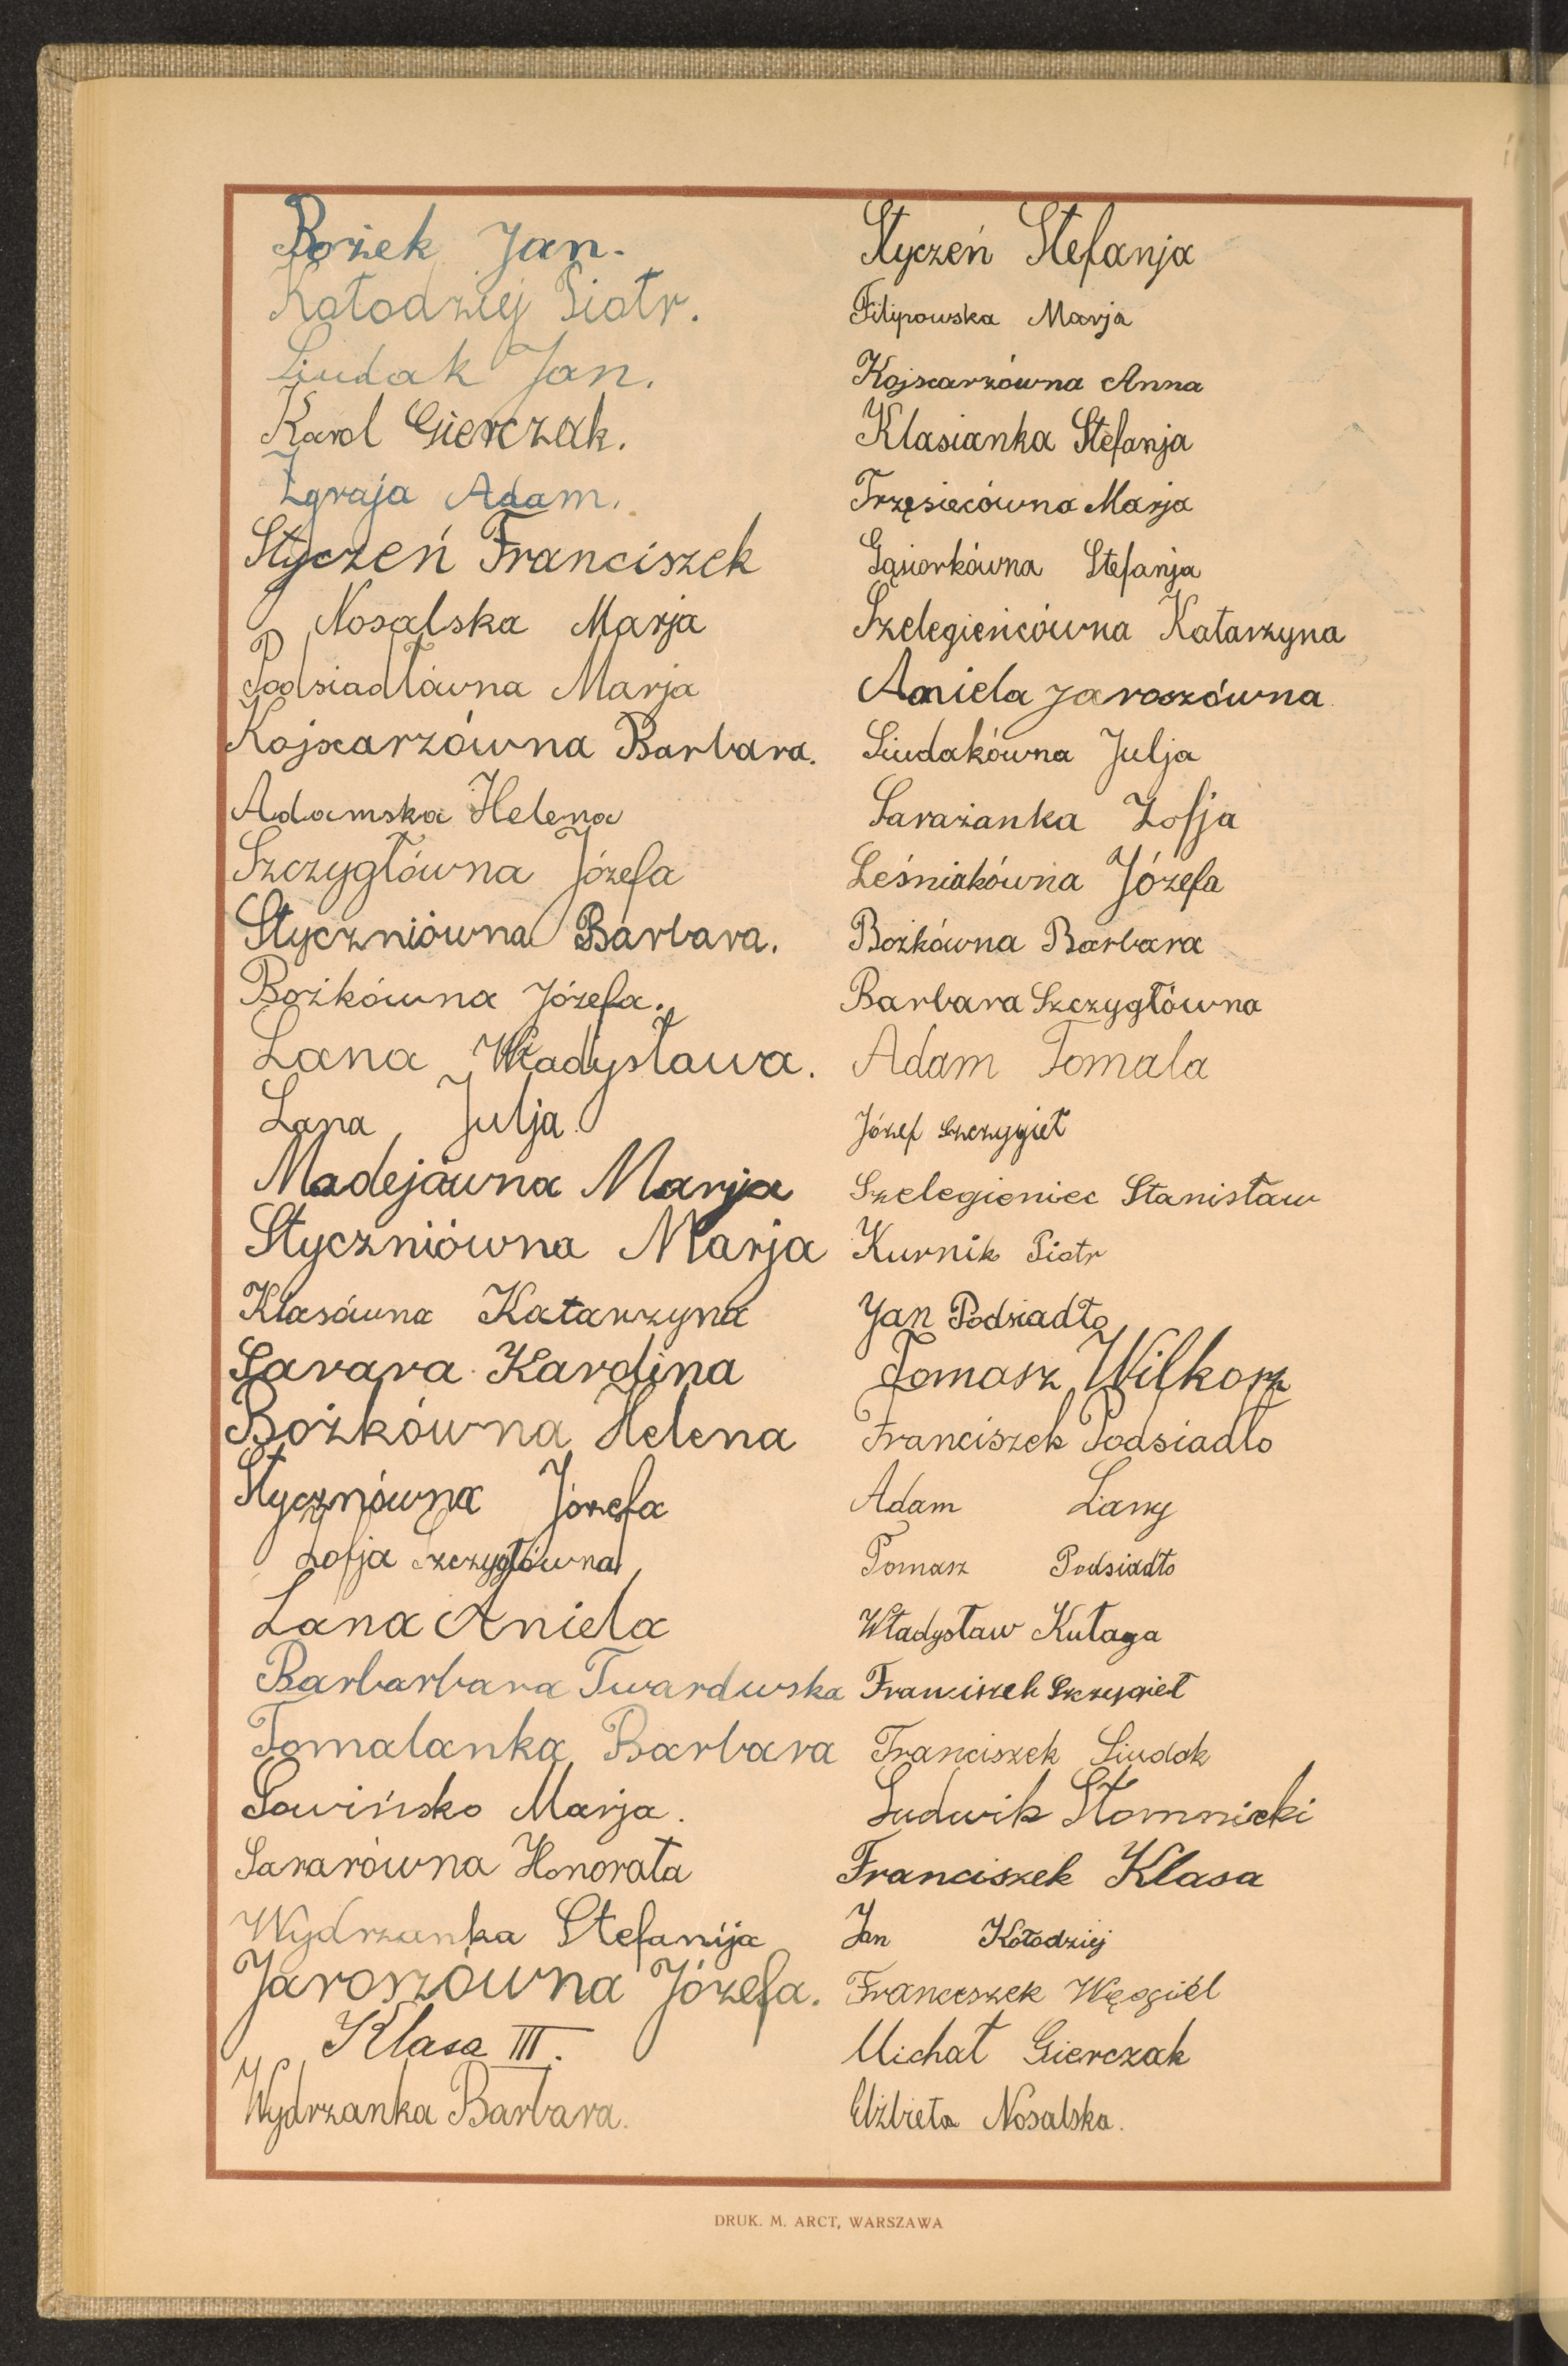 Bożek Jan.
Kołodziej Piotr.
Siudak Jan.
Karol Gierczak.
Zgraja Adam.
Styczeń Franciszek
Nosalska Marja
Podsiadłówna Marja
Kojxarzówna Barbara.
Adamska Helena
Szczygłówna Józefa
Styczniówna Barbara.
Bożkówna Józefa.
Lana Władysława.
Lana Julja.
Madejówna Marja
Styczniówna Marja
Klasówna Katarzyna
Sarara Karolina
Bożkówna Helena
Stycznówna Józefa
Zofja Szczygłówna
Lana Aniela
Barbarbara Twardwska
Tomalanka Barbara
Sowińsko Marja.
Sararówna Honorata
Wydrzanka Stefanija
Jaroszówna Józefa.
Klasa III.
Wydrzanka Barbara.
Styczeń Stefanja
Filipowska Marja
Kojxarzówna Anna
Klasianka Stefanja
Trzęsiecówna Marja
Gąsiorkówna Stefanja
Szelegieńcówna Katarzyna
Aniela Jaroszówna
Siudakówna Julja
Sarażanka Zofja
Leśniakówna Józefa
Bożkówna Barbara
Barbara Szczygłówna
Adam Tomala
Józef Szczygieł
Szelegieniec Stanisław
Kurnik Piotr
Jan Podsiadło
Tomasz Wilkosz
Franciszek Podsiadło
Adam Lany
Tomasz Podsiadło
Władysław Kułaga
Franciszek Szczygieł
Franciszek Siudak
Ludwik Słomnicki
Franciszek Klasa
Jan Kołodziej
Franceszek Węgiél
Michał Gierczak
Elżbieta Nosalska.
DRUK. M. ARCT, WARSZAWA